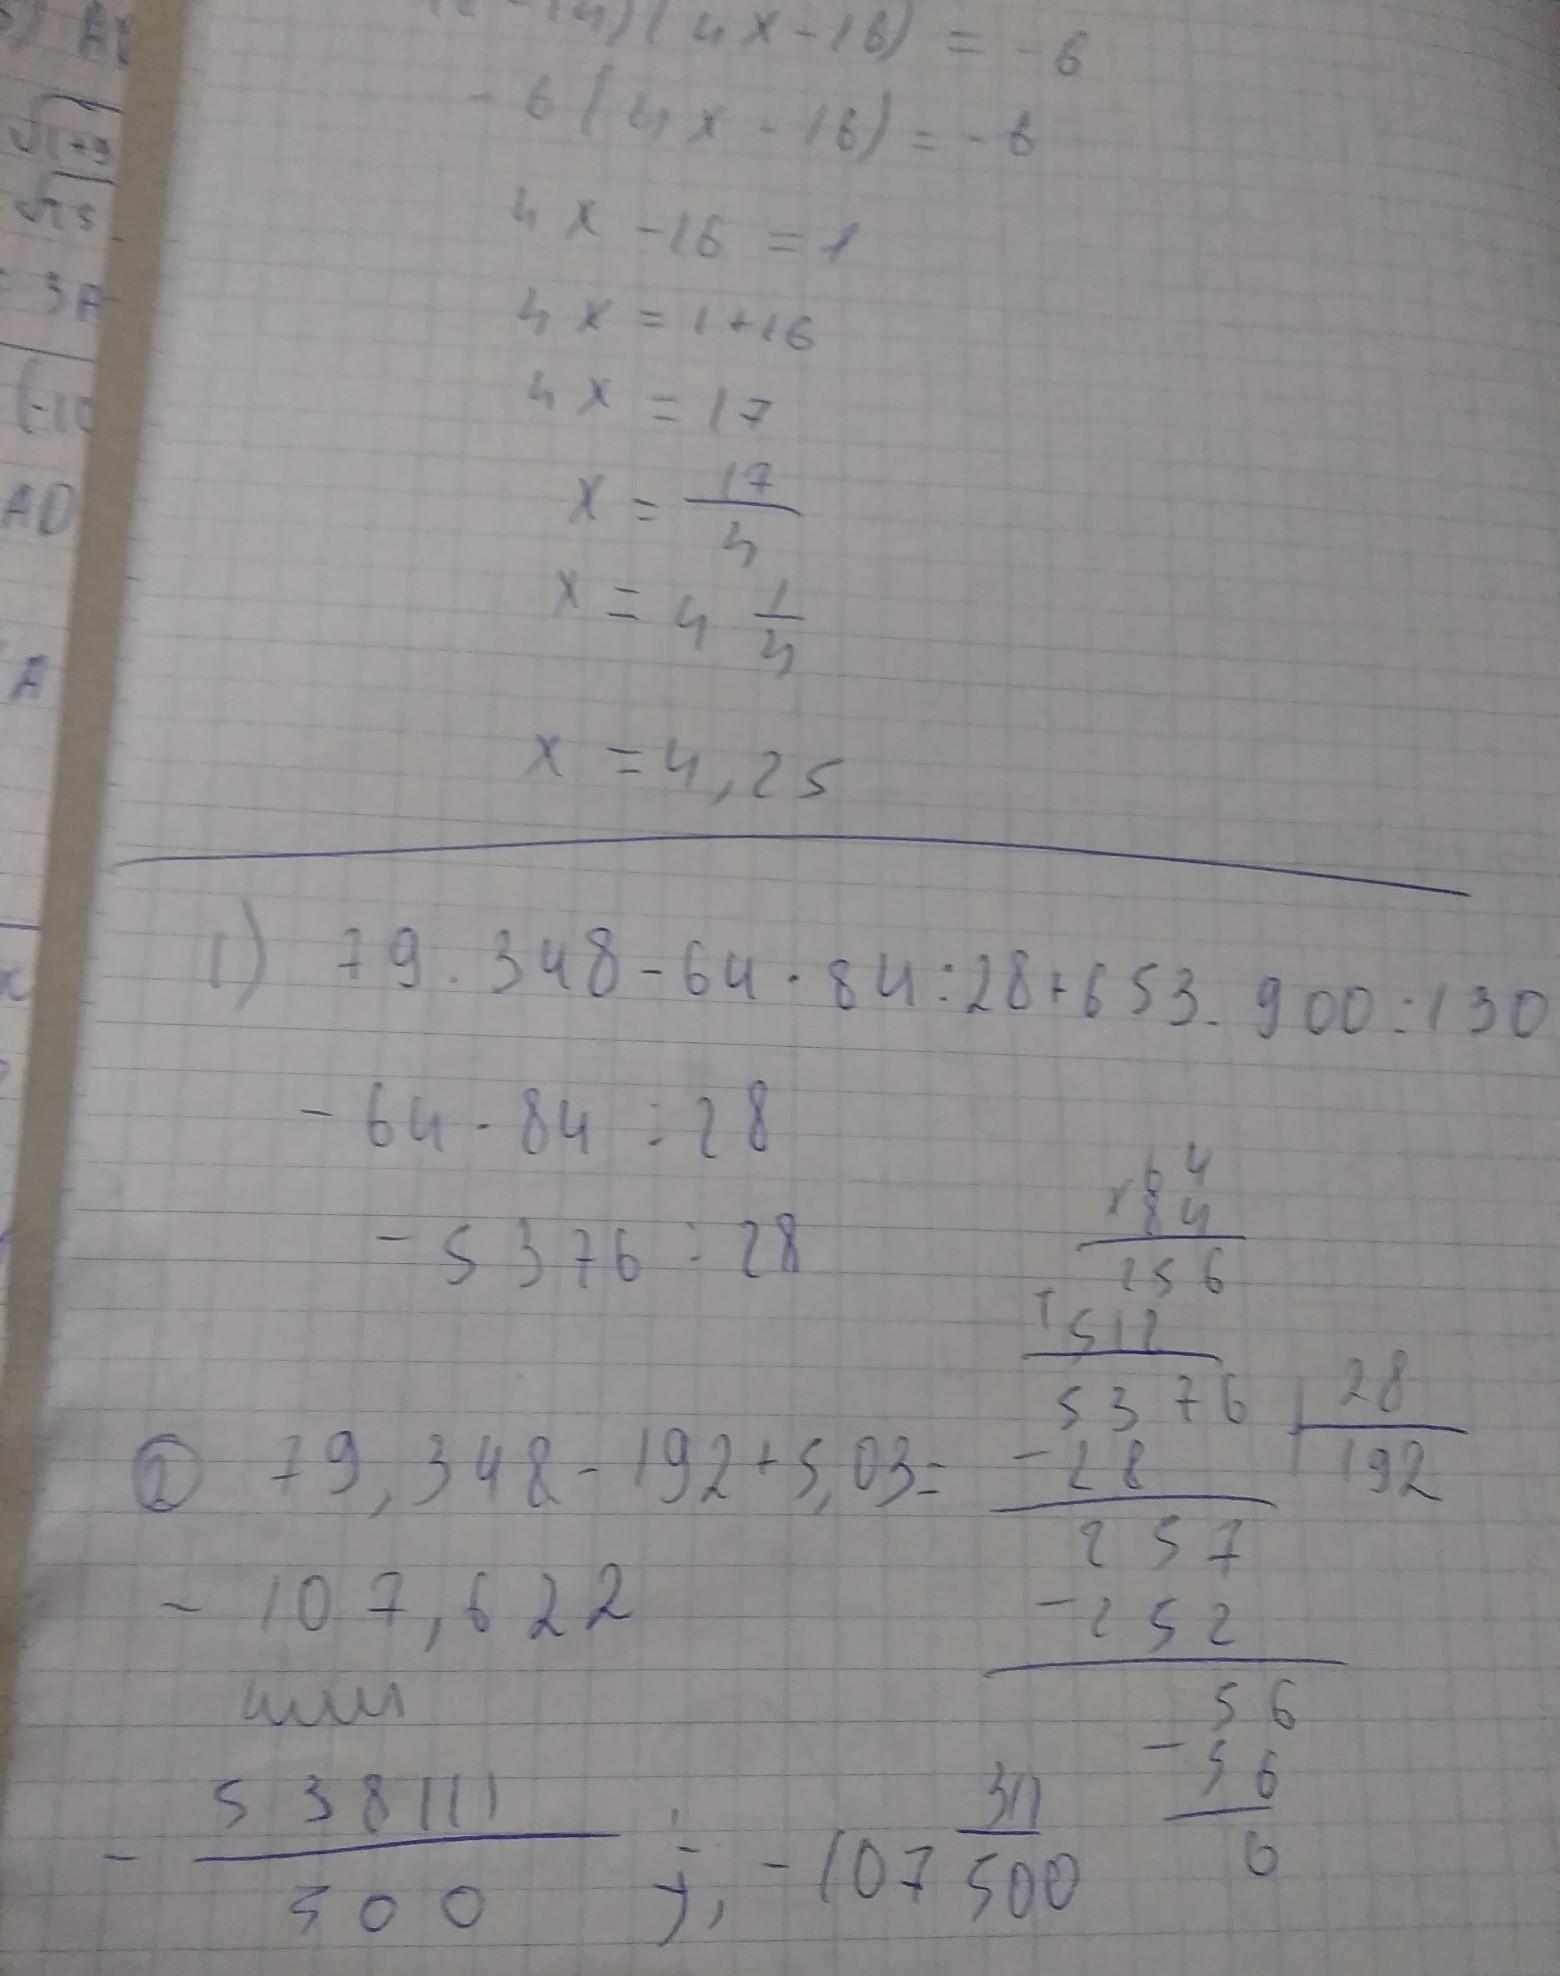 (4x-16) = -6
-6(4x-16) = -6
4x -16 = 1
4x = 1+16
4x = 17
x = 17/4
x = 4 1/4
x = 4,25
1) 79.348-64·84:28+653.900:130
-64·84:28
-5376:28
×64
84
256
+512
5376 | 28
-28 192
257
-252
56
-56
0
② 79,348-192+5,03=
-107,622
или
- 53811/500 ; -107 311/500